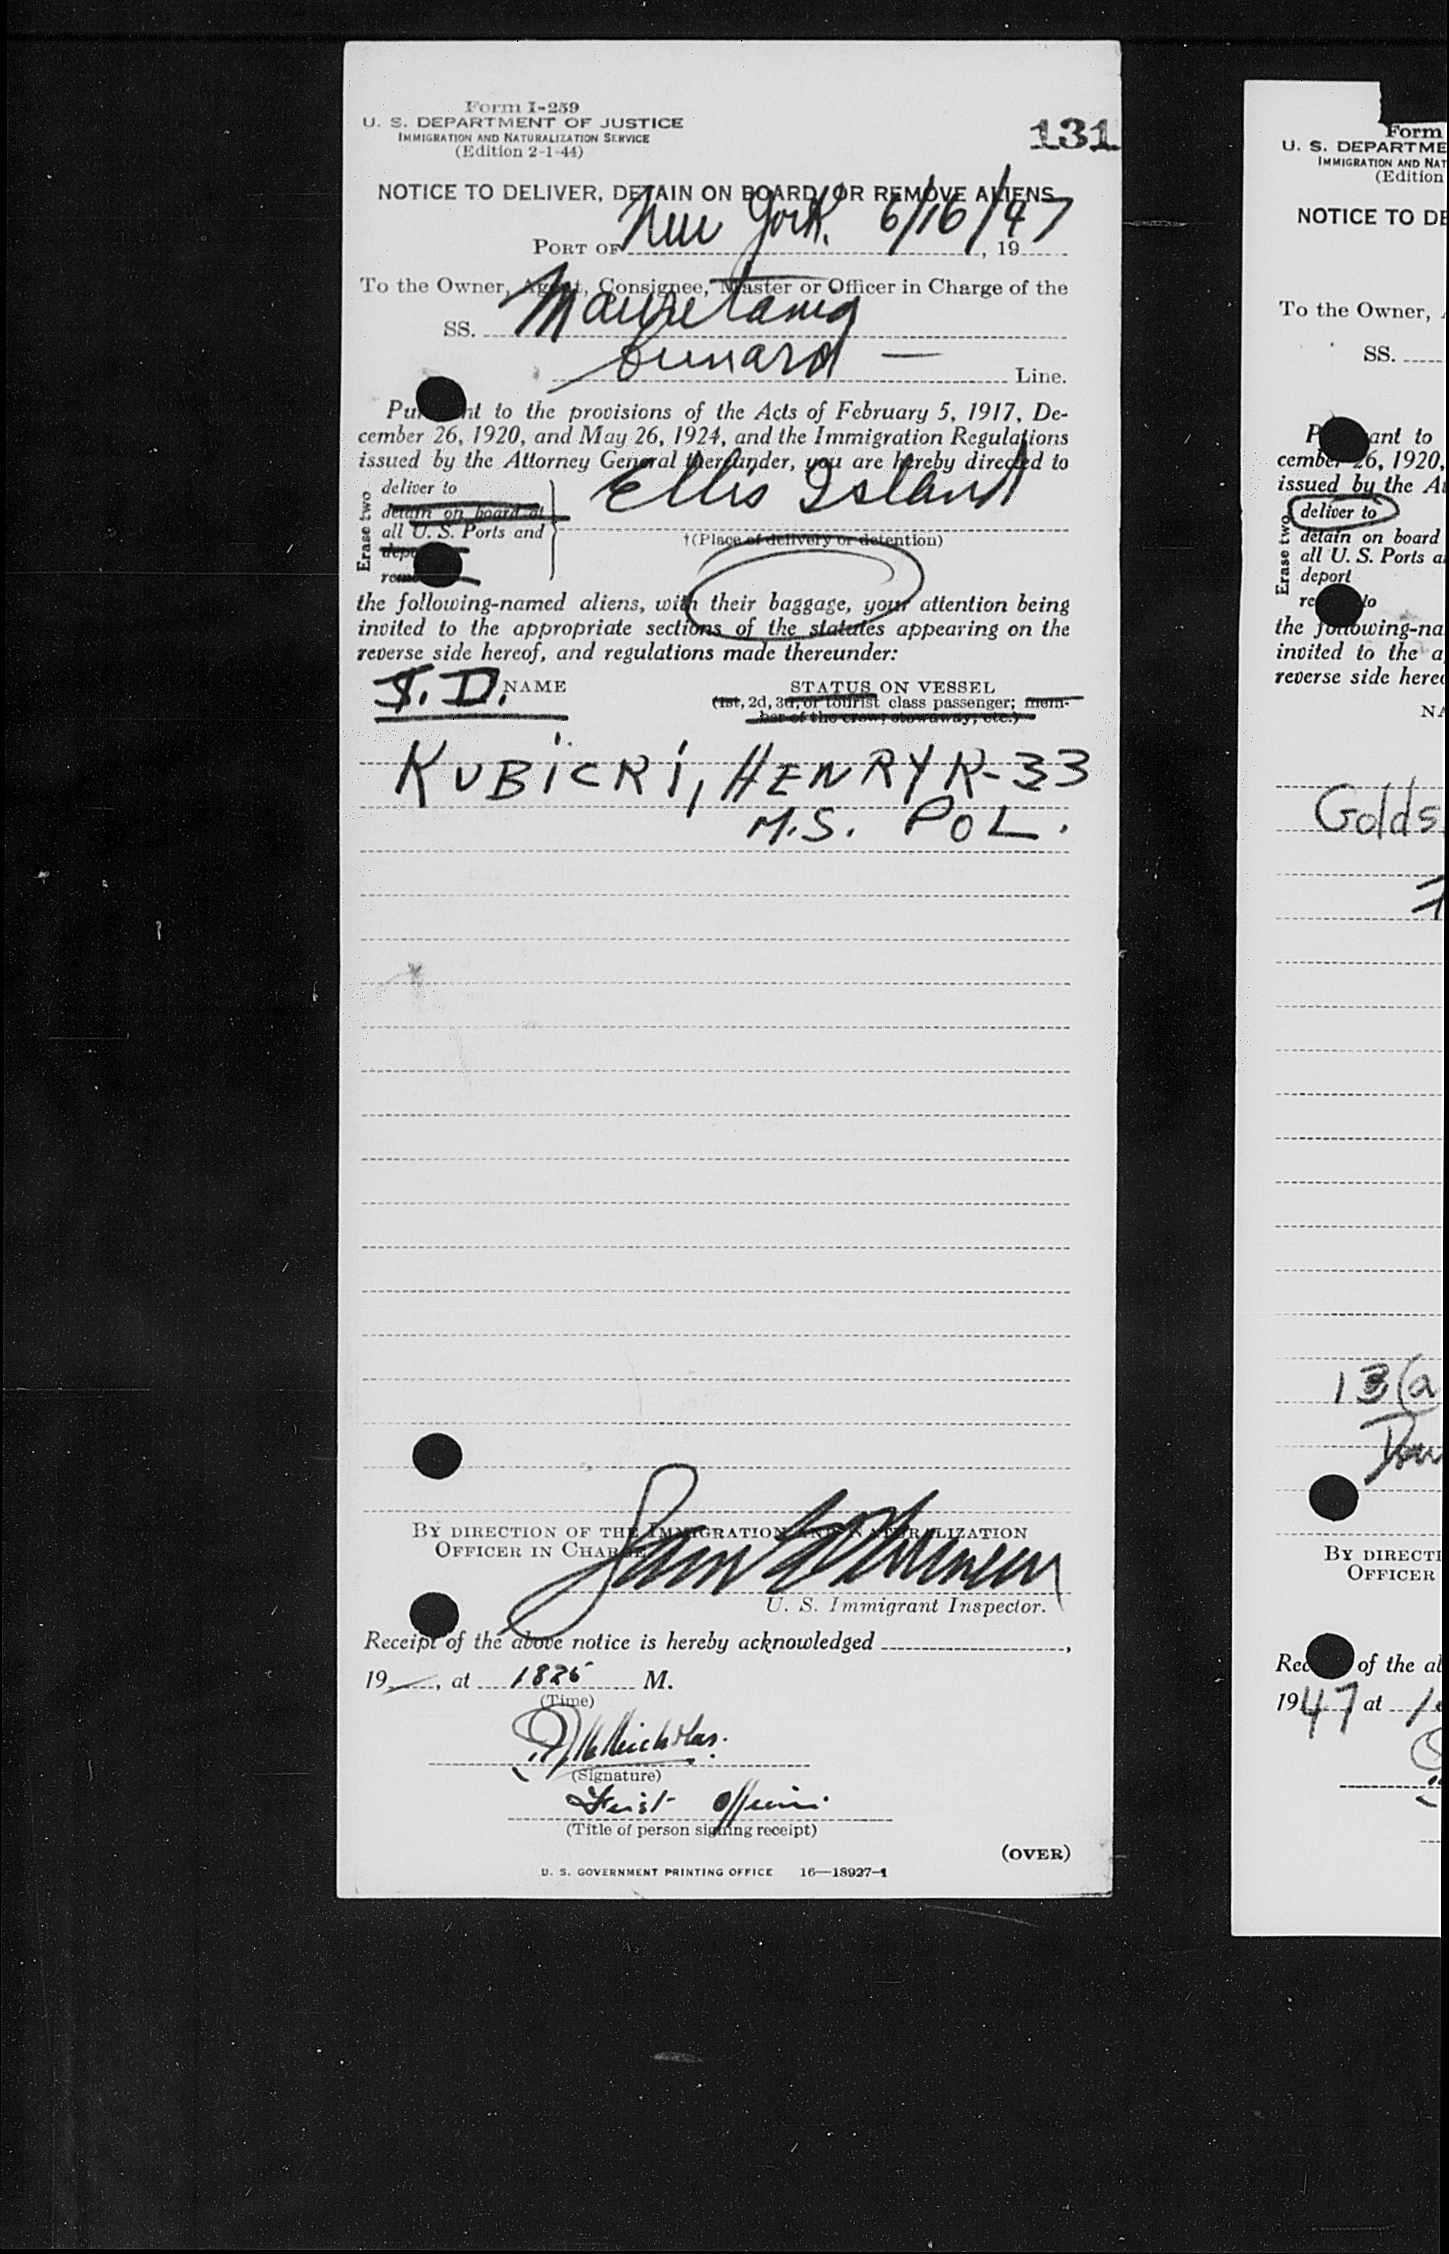 Form I-259
U. S. DEPARTMENT OF JUSTICE
IMMIGRATION AND NATURALIZATION SERVICE
(Edition 2-1-44)
131
NOTICE TO DELIVER, DETAIN ON BOARD, OR REMOVE ALIENS
PORT OF New York, 6/16/47, 19
To the Owner, Agent, Consignee, Master or Officer in Charge of the
SS. Mauretania
Cunard — Line.
Pursuant to the provisions of the Acts of February 5, 1917, De-
cember 26, 1920, and May 26, 1924, and the Immigration Regulations
issued by the Attorney General thereunder, you are hereby directed to
Erase two
deliver to
detain on board at
all U. S. Ports and
deport
remove to
Ellis Island
†(Place of delivery or detention)
the following-named aliens, with their baggage, your attention being
invited to the appropriate sections of the statutes appearing on the
reverse side hereof, and regulations made thereunder:
NAME STATUS ON VESSEL
(1st, 2d, 3d, or tourist class passenger; mem-
ber of the crew; stowaway; etc.)
KUBICKI, HENRYK-33
M.S. POL.
BY DIRECTION OF THE IMMIGRATION AND NATURALIZATION
OFFICER IN CHARGE
U. S. Immigrant Inspector.
Receipt of the above notice is hereby acknowledged ,
19 , at 1825 M.
(Time)
Nicholas.
(Signature)
First Officer
(Title of person signing receipt)
(OVER)
U. S. GOVERNMENT PRINTING OFFICE 16—18927-1
Form
U. S. DEPARTME
IMMIGRATION AND NAT
(Edition
NOTICE TO DE
To the Owner,
SS.
ant to
cember 26, 1920,
issued by the A
Erase two
deliver to
detain on board
all U. S. Ports a
deport
the following-na
invited to the a
reverse side here
NA
Golds
13(a
BY DIRECTI
OFFICER
of the a
1947 at